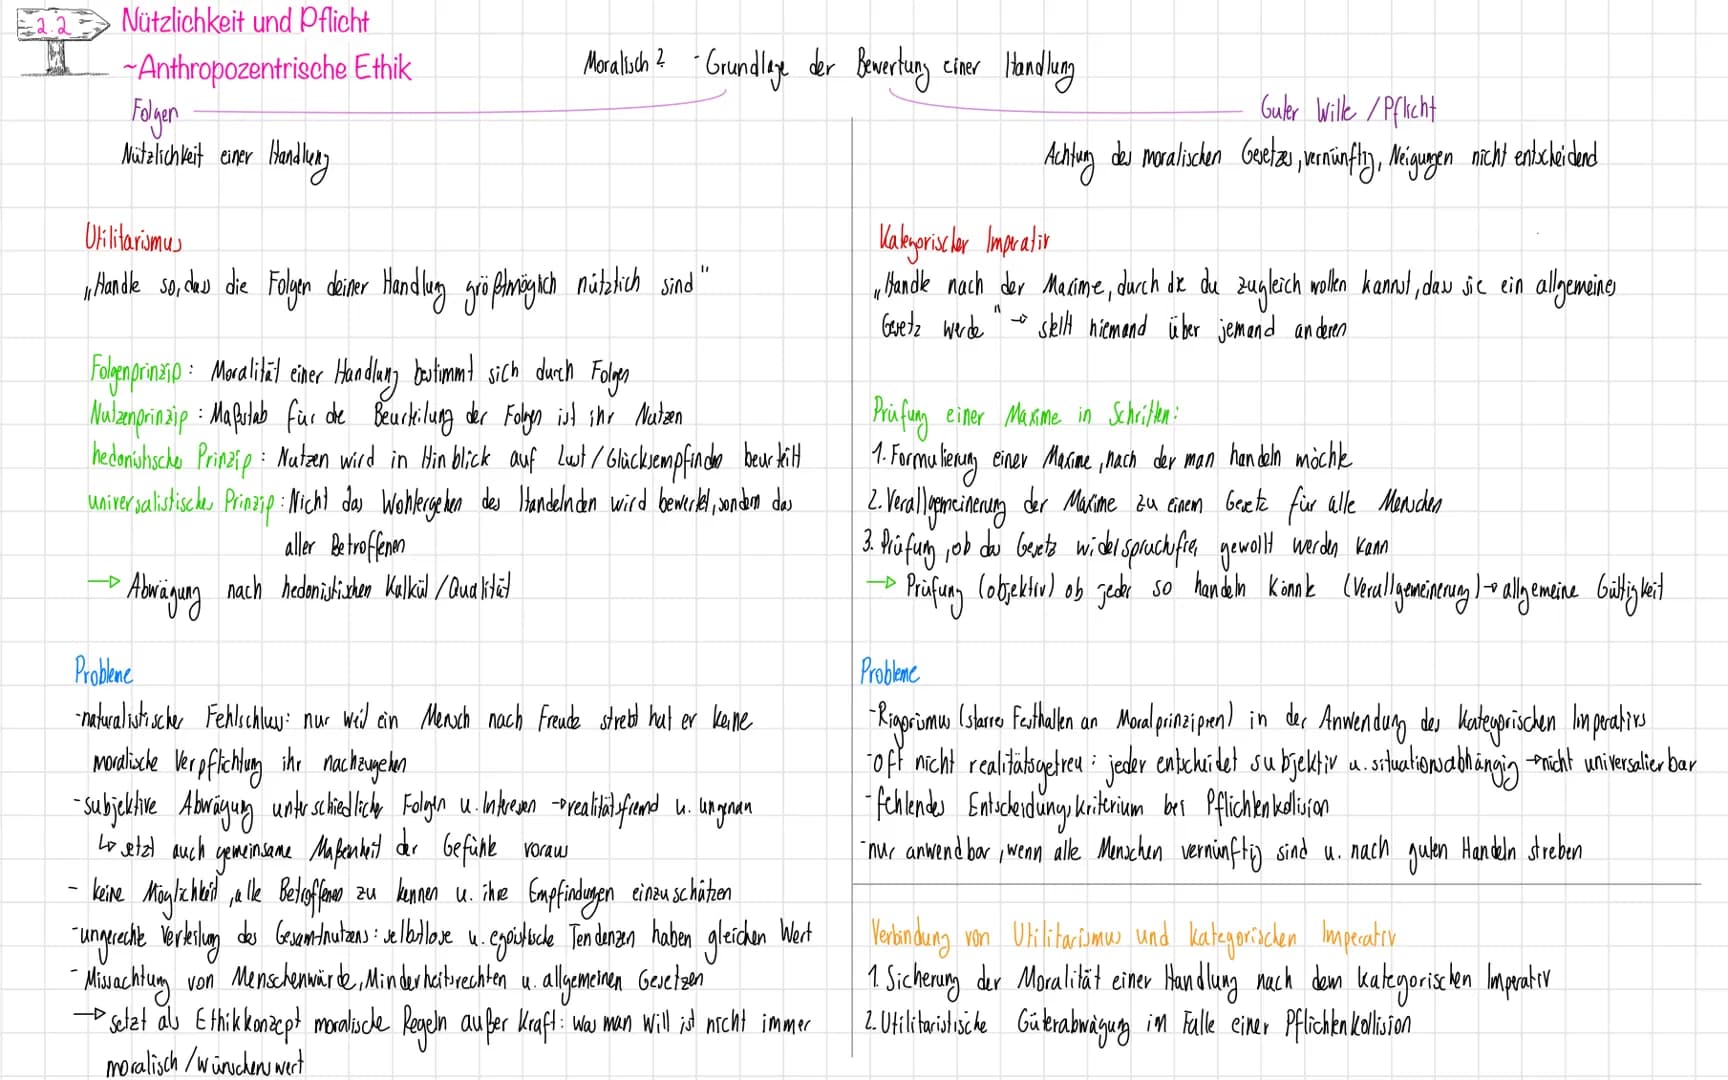 2.2
Nützlichkeit und Pflicht
~Anthropozentrische Ethik
Moralisch? - Grundlage der Bewertung einer Handlung
Folgen
Guter Wille / Pflicht
Nützlichkeit einer Handlung
Achtung des moralischen Gesetzes, vernünftig, Neigungen nicht entscheidend
Utilitarismus
„Handle so, dass die Folgen deiner Handlung größtmöglich nützlich sind"
Folgenprinzip: Moralität einer Handlung bestimmt sich durch Folgen
Nutzenprinzip: Maßstab für die Beurteilung der Folgen ist ihr Nutzen
hedonistisches Prinzip: Nutzen wird in Hinblick auf Lust/Glücksempfinden beurteilt
universalistisches Prinzip: Nicht das Wohlergehen des Handelnden wird bewertet, sondern das
aller Betroffenen
→ Abwägung nach hedonistischen Kalkül/Qualität
Probleme
-naturalistischer Fehlschluss: nur weil ein Mensch nach Freude strebt hat er keine
moralische Verpflichtung ihr nachzugehen
-subjektive Abwägung unterschiedlicher Folgen u. Interessen →realitätsfremd u. ungenau
↳ setzt auch gemeinsame Maßeinheit der Gefühle voraus
- keine Möglichkeit, alle Betroffenen zu kennen u. ihre Empfindungen einzuschätzen
-ungerechte Verteilung des Gesamtnutzens: selbstlose u. egoistische Tendenzen haben gleichen Wert
- Missachtung von Menschenwürde, Minderheitsrechten u. allgemeinen Gesetzen
→ setzt als Ethikkonzept moralische Regeln außer Kraft: was man will ist nicht immer
moralisch/wünschenswert
Kategorischer Imperativ
„Handle nach der Maxime, durch die du zugleich wollen kannst, dass sie ein allgemeines
Gesetz werde" → stellt niemand über jemand anderen
Prüfung einer Maxime in Schritten:
1. Formulierung einer Maxime, nach der man handeln möchte
2. Verallgemeinerung der Maxime zu einem Gesetz für alle Menschen
3. Prüfung, ob das Gesetz widerspruchsfrei gewollt werden kann
→ Prüfung (objektiv) ob jeder so handeln könnte (Verallgemeinerung) → allgemeine Gültigkeit
Probleme
-Rigorismus (starres Festhalten an Moralprinzipien) in der Anwendung des kategorischen Imperativs
-oft nicht realitätsgetreu: jeder entscheidet subjektiv u. situationsabhängig →nicht universalierbar
-fehlendes Entscheidungskriterium bei Pflichtenkollision
-nur anwendbar, wenn alle Menschen vernünftig sind u. nach guten Handeln streben
Verbindung von Utilitarismus und kategorischen Imperativ
1. Sicherung der Moralität einer Handlung nach dem kategorischen Imperativ
2. Utilitaristische Güterabwägung im Falle einer Pflichtenkollision